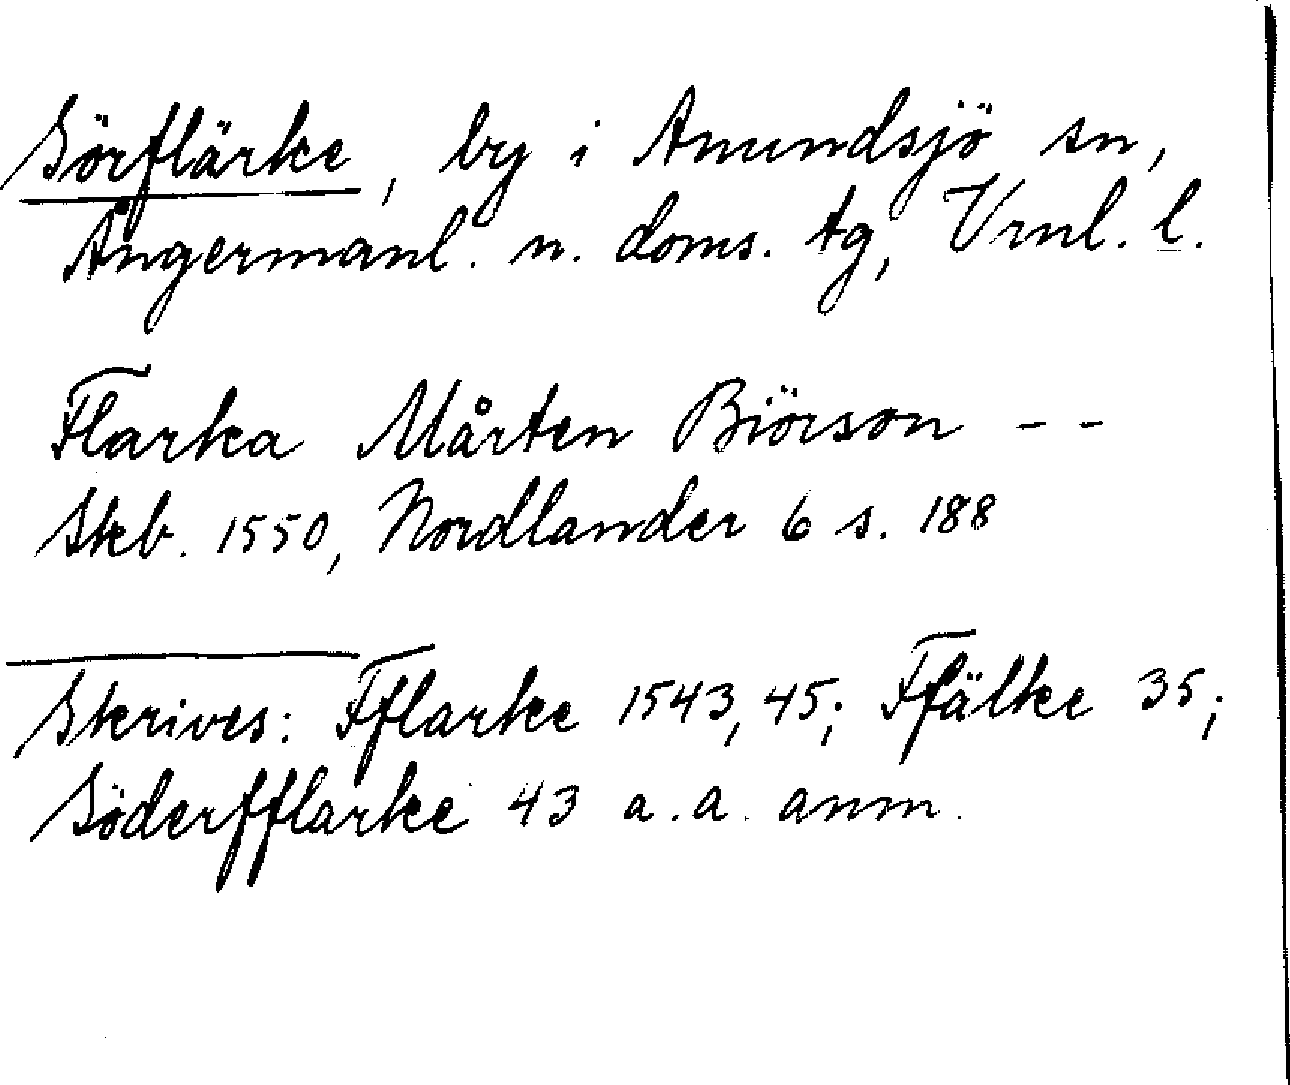 Sörflärke, by i Amundsjö sn,
Ångermanl. n. doms. tg, Vrnl. l.
Flarka Mårten Biörson - -
Skb. 1550, Nordlander 6 s. 188
Skrives: Fflarke 1543, 45; Ffälke 35;
Söderfflarke 43 a.a. anm.